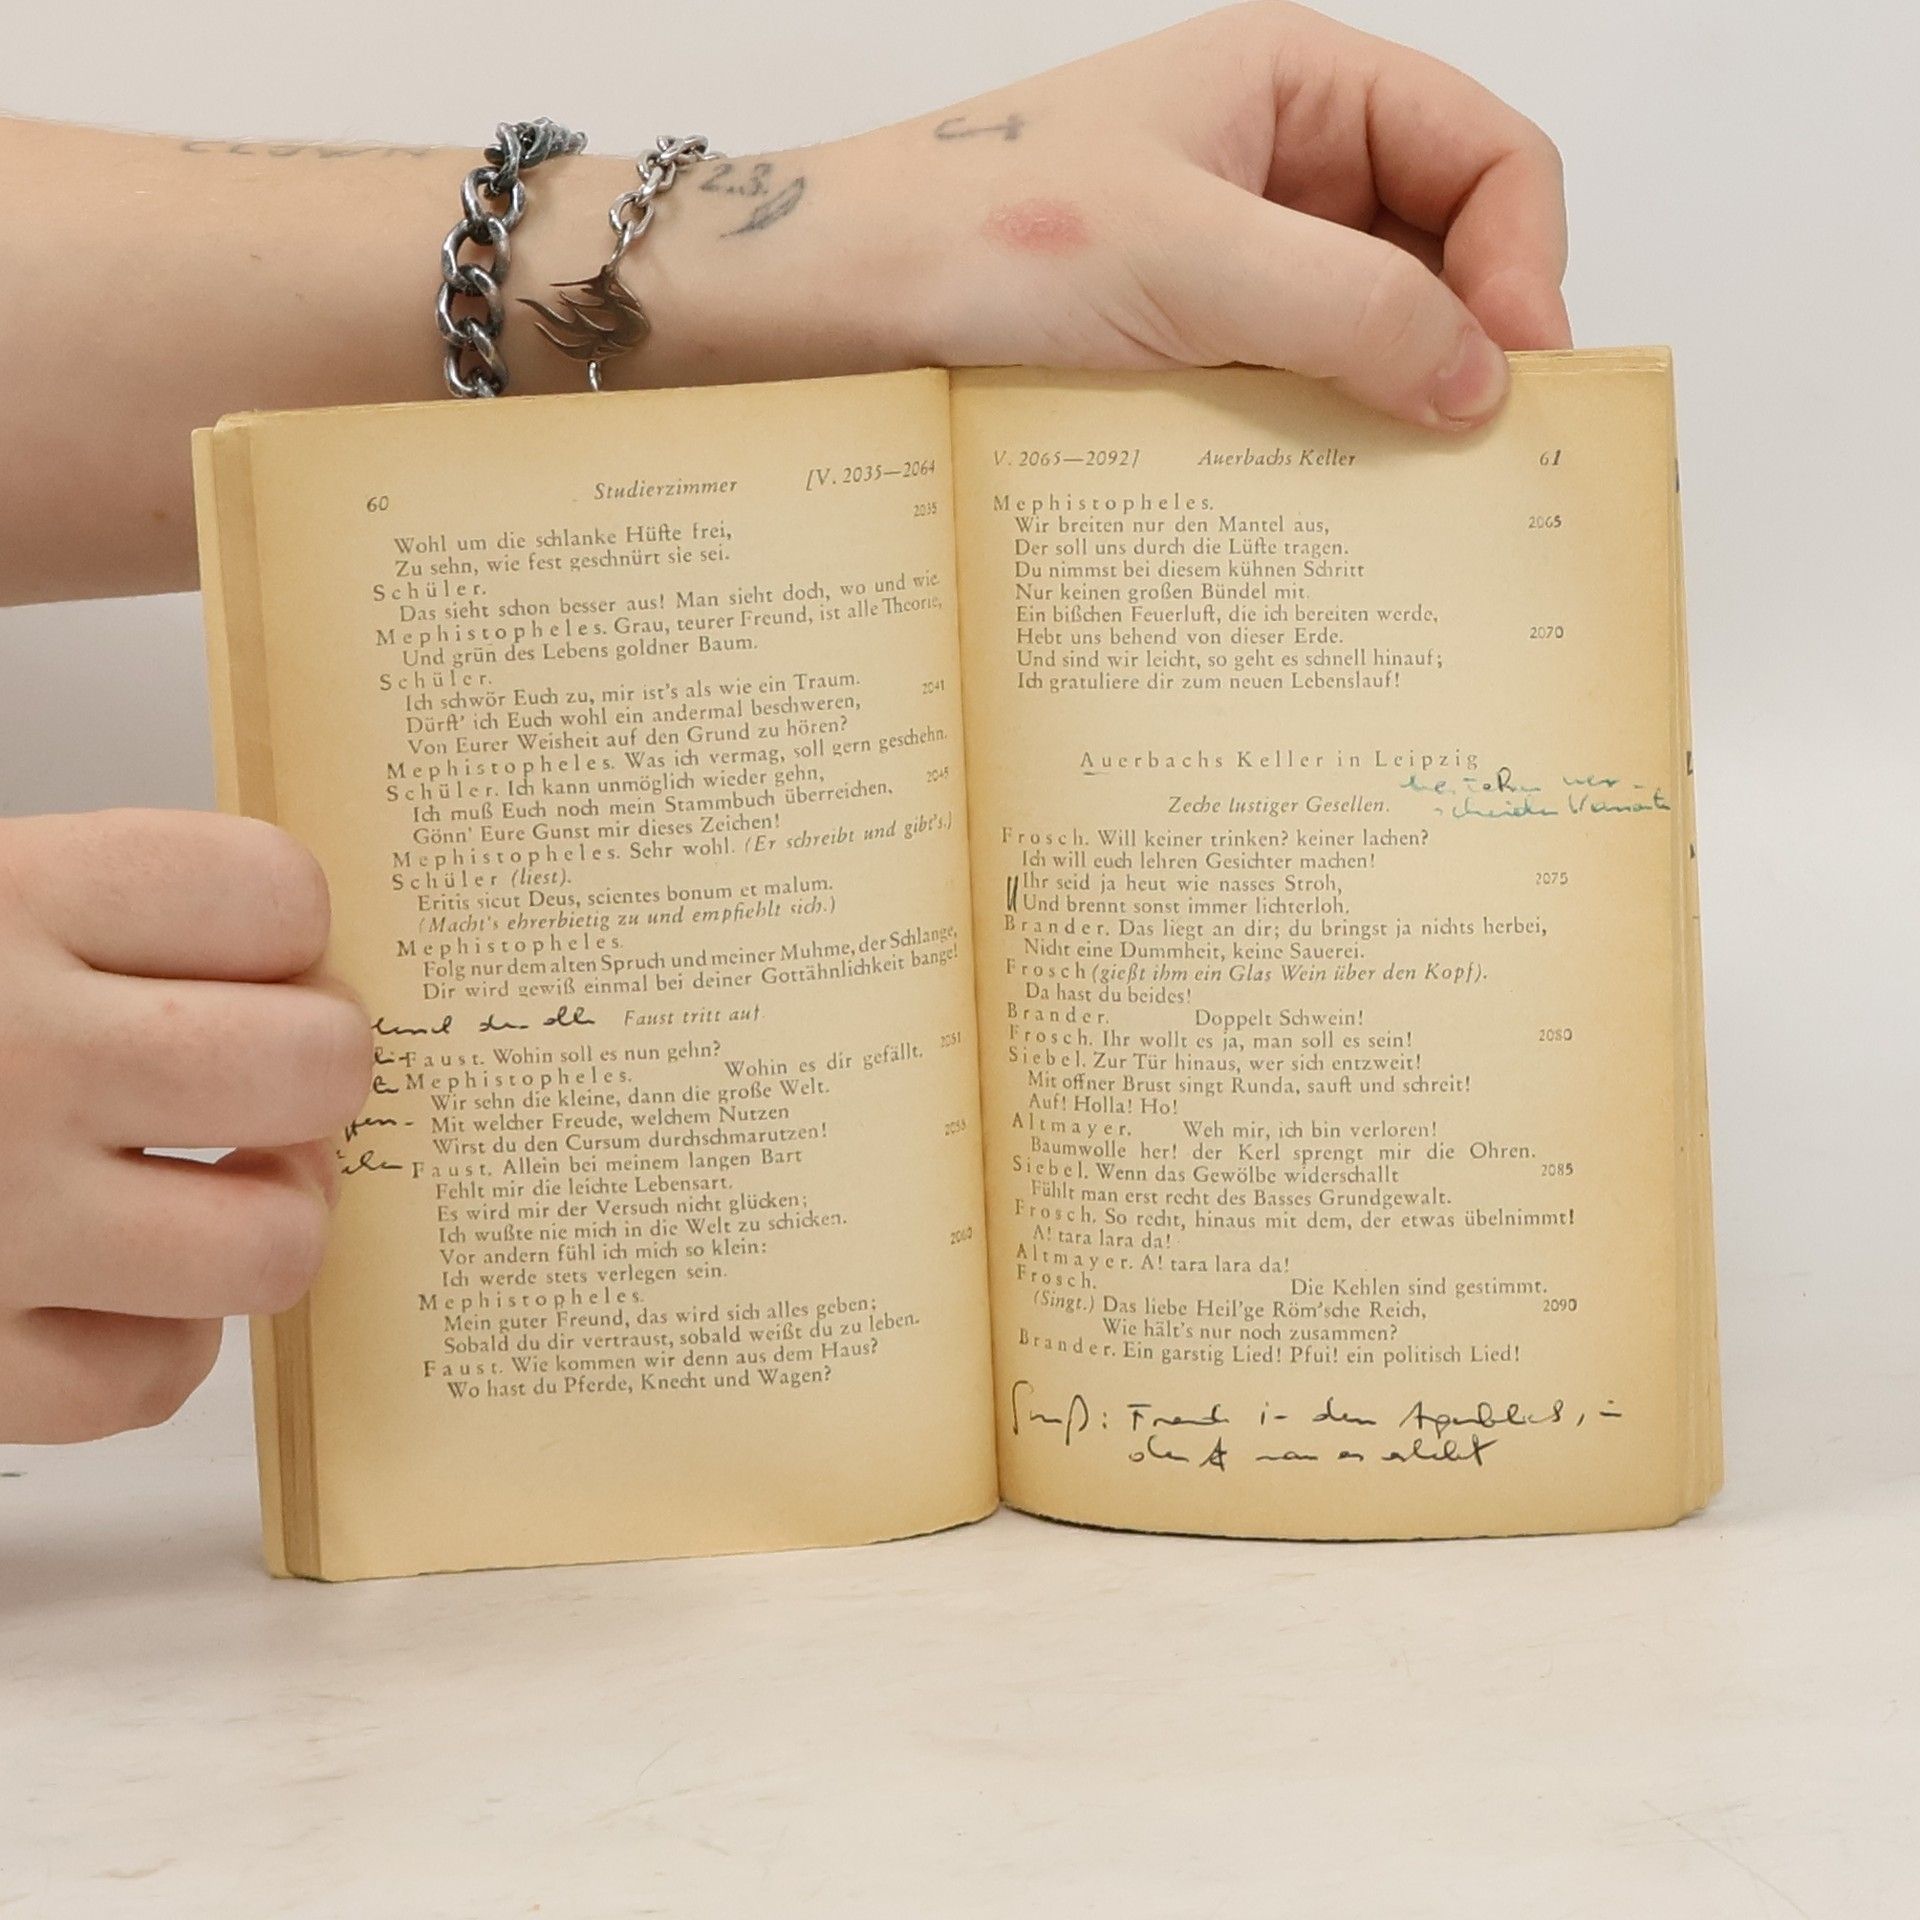 2.3.
60 Studierzimmer [V. 2035—2064
2035
Wohl um die schlanke Hüfte frei,
Zu sehn, wie fest geschnürt sie sei.
Schüler.
Das sieht schon besser aus! Man sieht doch, wo und wie.
Mephistopheles. Grau, teurer Freund, ist alle Theorie,
Und grün des Lebens goldner Baum.
Schüler.
Ich schwör Euch zu, mir ist's als wie ein Traum. 2041
Dürft' ich Euch wohl ein andermal beschweren,
Von Eurer Weisheit auf den Grund zu hören?
Mephistopheles. Was ich vermag, soll gern geschehn.
Schüler. Ich kann unmöglich wieder gehn, 2045
Ich muß Euch noch mein Stammbuch überreichen.
Gönn' Eure Gunst mir dieses Zeichen!
Mephistopheles. Sehr wohl. (Er schreibt und gibt's.)
Schüler (liest).
Eritis sicut Deus, scientes bonum et malum.
(Macht's ehrerbietig zu und empfiehlt sich.)
Mephistopheles.
Folg nur dem alten Spruch und meiner Muhme, der Schlange,
Dir wird gewiß einmal bei deiner Gottähnlichkeit bange!
Faust tritt auf.
Faust. Wohin soll es nun gehn? 2051
Mephistopheles. Wohin es dir gefällt.
Wir sehn die kleine, dann die große Welt.
Mit welcher Freude, welchem Nutzen
Wirst du den Cursum durchschmarutzen! 2055
Faust. Allein bei meinem langen Bart
Fehlt mir die leichte Lebensart.
Es wird mir der Versuch nicht glücken;
Ich wußte nie mich in die Welt zu schicken.
Vor andern fühl ich mich so klein: 2060
Ich werde stets verlegen sein.
Mephistopheles.
Mein guter Freund, das wird sich alles geben;
Sobald du dir vertraust, sobald weißt du zu leben.
Faust. Wie kommen wir denn aus dem Haus?
Wo hast du Pferde, Knecht und Wagen?
V. 2065—2092] Auerbachs Keller 61
Mephistopheles.
Wir breiten nur den Mantel aus, 2065
Der soll uns durch die Lüfte tragen.
Du nimmst bei diesem kühnen Schritt
Nur keinen großen Bündel mit.
Ein bißchen Feuerluft, die ich bereiten werde,
Hebt uns behend von dieser Erde. 2070
Und sind wir leicht, so geht es schnell hinauf;
Ich gratuliere dir zum neuen Lebenslauf!
Auerbachs Keller in Leipzig
Zeche lustiger Gesellen.
Frosch. Will keiner trinken? keiner lachen?
Ich will euch lehren Gesichter machen!
Ihr seid ja heut wie nasses Stroh, 2075
Und brennt sonst immer lichterloh.
Brander. Das liegt an dir; du bringst ja nichts herbei,
Nicht eine Dummheit, keine Sauerei.
Frosch (gießt ihm ein Glas Wein über den Kopf).
Da hast du beides!
Brander. Doppelt Schwein!
Frosch. Ihr wollt es ja, man soll es sein! 2080
Siebel. Zur Tür hinaus, wer sich entzweit!
Mit offner Brust singt Runda, sauft und schreit!
Auf! Holla! Ho!
Altmayer. Weh mir, ich bin verloren!
Baumwolle her! der Kerl sprengt mir die Ohren.
Siebel. Wenn das Gewölbe widerschallt 2085
Fühlt man erst recht des Basses Grundgewalt.
Frosch. So recht, hinaus mit dem, der etwas übelnimmt!
A! tara lara da!
Altmayer. A! tara lara da!
Frosch. Die Kehlen sind gestimmt.
(Singt.) Das liebe Heil'ge Röm'sche Reich, 2090
Wie hält's nur noch zusammen?
Brander. Ein garstig Lied! Pfui! ein politisch Lied!
in dem Augenblick, in
man es erlebt